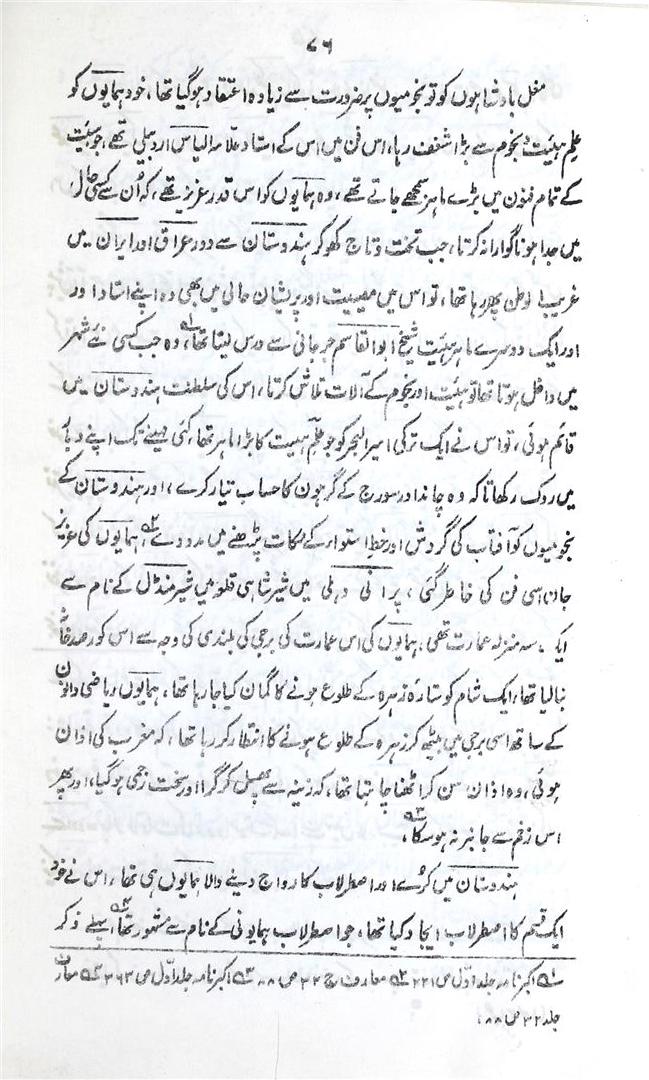 ۷۶
مغل بادشاہوں کو تو نجومیوں پر ضرورت سے زیادہ اعتقاد ہوگیا تھا، خود ہمایوں کو
علم ہیئت و نجوم سے بڑا شغف رہا، اس فن میں اس کے استاد علامہ الیاس اردبیلی تھے، جو ہیئت
کے تمام فنون میں بڑے ماہر سمجھے جاتے تھے، وہ ہمایوں کو اس قدر عزیز تھے، کہ اُن سے کسی حال
میں جدا ہونا گوارا نہ کرتا، جب تخت و تاج کھو کر ہندوستان سے دور عراق اور ایران میں
غریب الوطن پھر رہا تھا، تو اس میں مصیبت اور پریشان حالی میں بھی وہ اپنے استاد اور
اور ایک دوسرے ماہر ہیئت شیخ ابوالقاسم جرجانی سے درس لیتا تھا، وہ جب کسی نئے شہر
میں داخل ہوتا تھا تو ہیئت اور نجوم کے آلات تلاش کرتا، اس کی سلطنت ہندوستان میں
قائم ہوئی، تو اس نے ایک ترکی امیر البحر کو جو علم ہیئت کا بڑا ماہر تھا، کئی مہینے تک اپنے دربار
میں روک رکھا تاکہ وہ چاند اور سورج کے گرہوں کا حساب تیار کرے، اور ہندوستان کے
نجومیوں کو آفتاب کی گردش اور خط استواء کے نکات پڑھنے میں مدد دے، ہمایوں کی عزیز
جان اسی فن کی خاطر گئی، پرانی دہلی میں شیر شاہی قلعہ میں شیر منڈل کے نام سے
ایک سہ منزلہ عمارت تھی، ہمایوں کی اس عمارت کی برجی کی بلندی کی وجہ سے اس کو رصدخانہ
بنالیا تھا، ایک شام کو ستارہ زہرہ کے طلوع ہونے کا گمان کیا جا رہا تھا، ہمایوں ریاضی دانوں
کے ساتھ اسی برجی میں بیٹھ کر زہرہ کے طلوع ہونے کا انتظار کر رہا تھا، کہ مغرب کی اذان
ہوئی، وہ اذان سن کر اٹھنا چاہتا تھا، کہ زینہ سے پھسل کر گرا اور سخت زخمی ہوگیا، اور پھر
اس زخم سے جانبر نہ ہوسکا،
ہندوستان میں کرے اور اصطرلاب کا رواج دینے والا ہمایوں ہی تھا، اس نے خود
ایک قسم کا اصطرلاب ایجاد کیا تھا، جو اصطرلاب ہمایونی کے نام سے مشہور تھا، پہلے ذکر
۱؎ اکبرنامہ جلد اوّل ص ۲۲۱ ۲؎ معارف ج ۳۲ ص ۸۸ ۳؎ اکبرنامہ جلد اوّل ص ۳۶۳ ۴؎ معارف
جلد ۳۲ ص ۸۸،